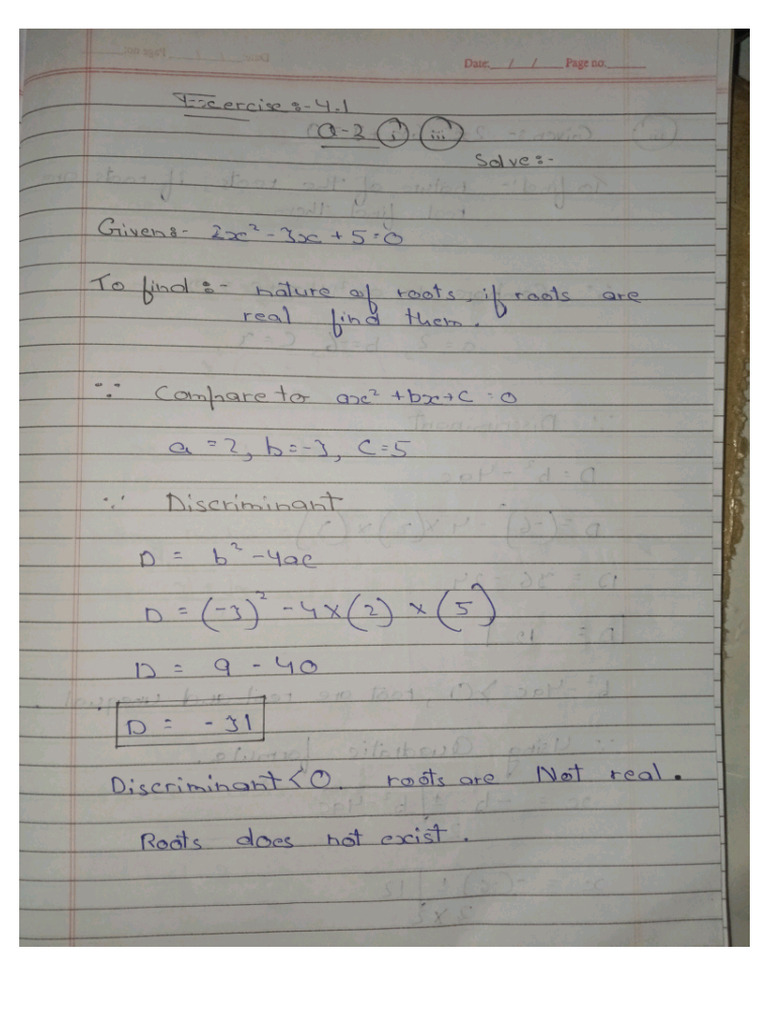 Date: / / Page no.
Excercise:-4.1
Q-2 (i) (iii)
Solve:-
Given:- 2x² - 3x + 5 = 0
To find:- nature of roots, if roots are
real find them.
∵ Compare to ax² + bx + c = 0
a = 2, b = -3, C = 5
∵ Discriminant
D = b² - 4ac
D = (-3)² - 4 × (2) × (5)
D = 9 - 40
D = - 31
Discriminant < 0. roots are Not real.
Roots does not exist.